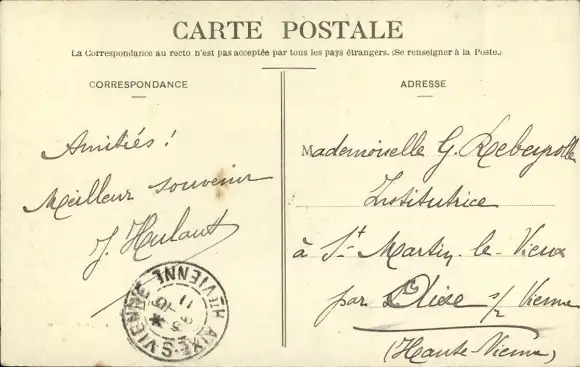 CARTE POSTALE
La Correspondance au recto n'est pas acceptée par tous les pays étrangers. (Se renseigner à la Poste.)
CORRESPONDANCE
Amitiés !
Meilleur souvenir
J. Hulaut
ADRESSE
Mademoiselle G. Rebeyrolle
Institutrice
à St Martin-le-Vieux
par Aixe s/ Vienne
(Haute-Vienne)
AIXE-S-VIENNE
HTE VIENNE